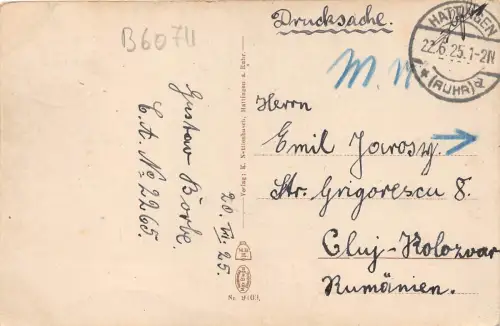 B60711
Drucksache.
HATTINGEN
22.6.25.1-2N
* (RUHR) 2
M. M
Herrn
Emil Jarosy.
Str. Grigorescu 8.
Cluj-Kolozvar
Rumänien.
Gustav Borbe
E.A. No 2265.
20. VI. 25.
Verlag: K. Nettmann, Hattingen a. Ruhr.